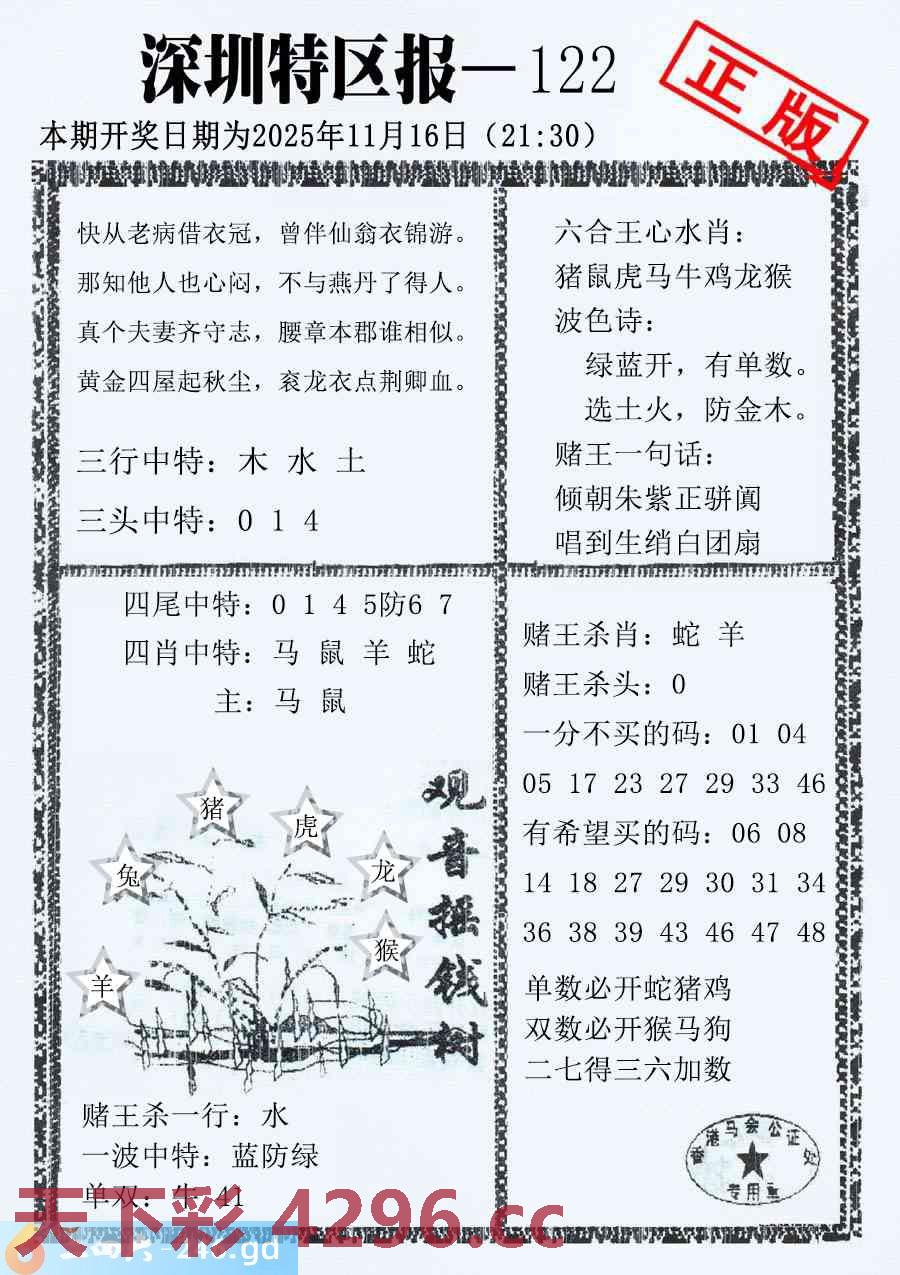 深圳特区报—122
正版
本期开奖日期为2025年11月16日（21:30）
快从老病借衣冠，曾伴仙翁衣锦游。
那知他人也心闷，不与燕丹了得人。
真个夫妻齐守志，腰章本郡谁相似。
黄金四屋起秋尘，衮龙衣点荆卿血。
三行中特：木 水 土
三头中特：0 1 4
六合王心水肖：
猪鼠虎马牛鸡龙猴
波色诗：
绿蓝开，有单数。
选土火，防金木。
赌王一句话：
倾朝朱紫正骈阗
唱到生绡白团扇
四尾中特：0 1 4 5防6 7
四肖中特：马 鼠 羊 蛇
主：马 鼠
观音摇钱树
猪
虎
兔
龙
猴
羊
赌王杀一行：水
一波中特：蓝防绿
单双：牛 41
赌王杀肖：蛇 羊
赌王杀头：0
一分不买的码：01 04
05 17 23 27 29 33 46
有希望买的码：06 08
14 18 27 29 30 31 34
36 38 39 43 46 47 48
单数必开蛇猪鸡
双数必开猴马狗
二七得三六加数
香港马会公证处
专用章
天下彩 4296.cc